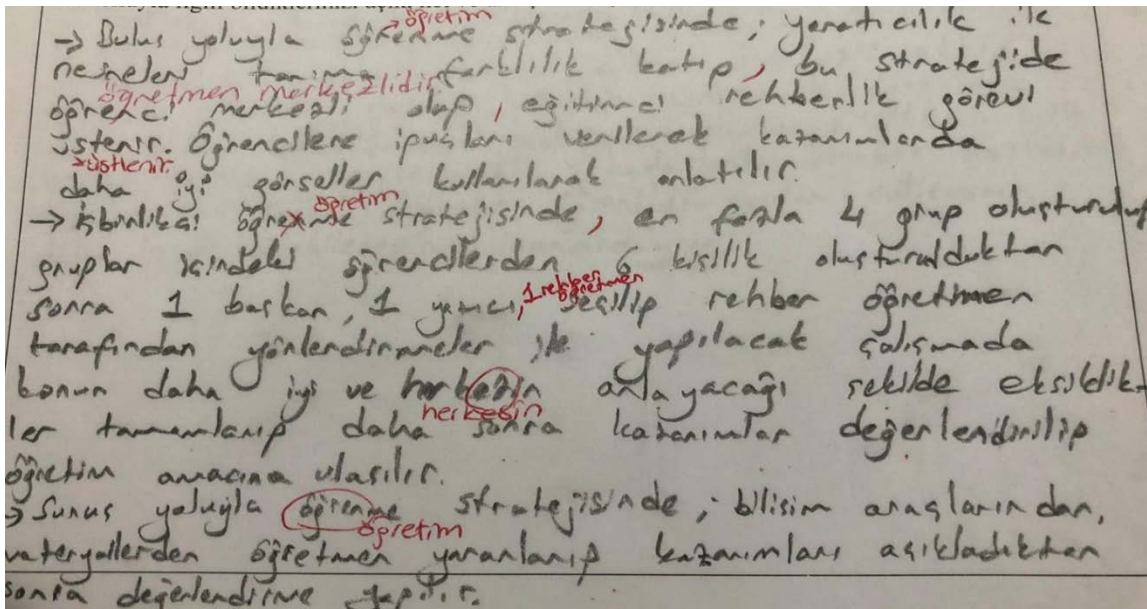 öğretim
→ Buluş yoluyla öğrenme stratejisinde; yaratıcılık ile
nesneleri tanıma farklılık katıp, bu stratejide
öğretmen merkezlidir
öğrenci merkezli olup, eğitimci rehberlik görevi
üstenir. Öğrencilere ipuçları verilerek kazanımlarda
üstlenir.
daha iyi görseller kullanılarak anlatılır.
öğretim
→ İşbirlikçi öğrenme stratejisinde, en fazla 4 grup oluşturulup
gruplar içindeki öğrencilerden 6 kişilik oluşturulduktan
1 rehber öğretmen
sonra 1 başkan, 1 yazıcı, seçilip rehber öğretmen
tarafından yönlendirmeler ile yapılacak çalışmada
konun daha iyi ve herkezin anlayacağı şekilde eksiklik-
herkesin
ler tamamlanıp daha sonra kazanımlar değerlendirilip
öğretim amacına ulaşılır.
→ Sunuş yoluyla öğrenme stratejisinde; bilişim araçlarından,
öğretim
materyallerden öğretmen yararlanıp kazanımları açıkladıktan
sonra değerlendirme yapılır.